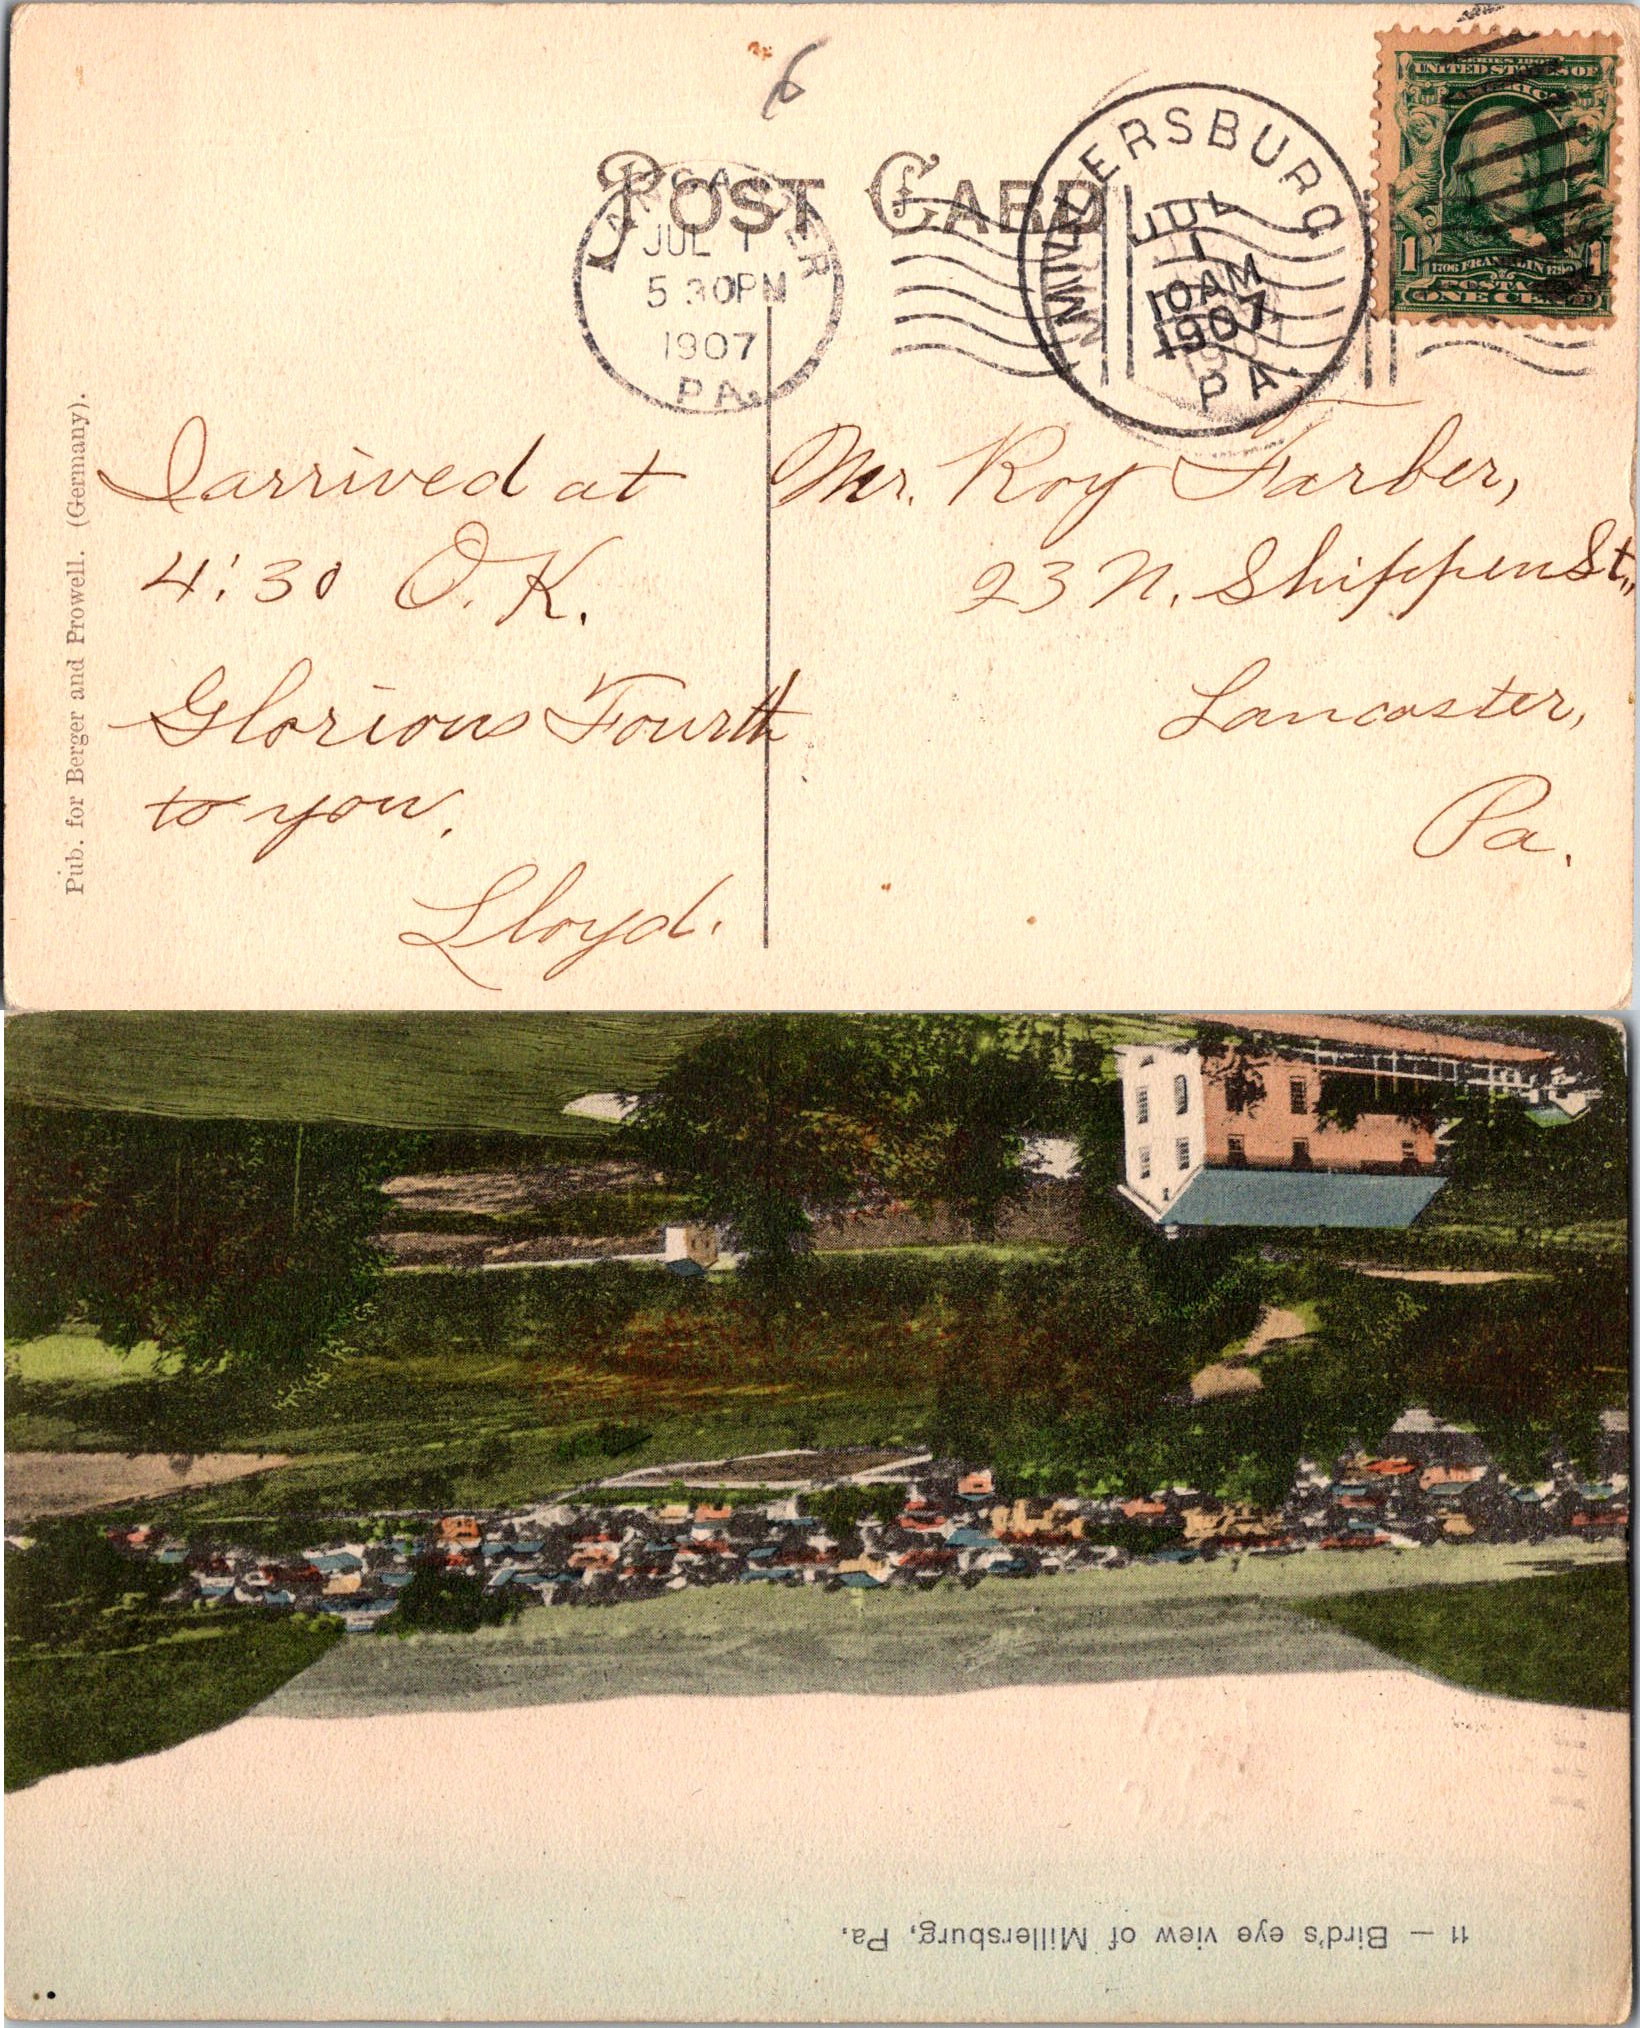 6
POST CARD
LANCASTER
JUL 1
5 30PM
1907
PA.
MILLERSBURG
JUL
1
10AM
1907
PA.
SERIES 1902
UNITED STATES OF
AMERICA
1 1706 FRANKLIN 1790 1
POSTAGE
ONE CENT
Pub. for Berger and Prowell. (Germany).
I arrived at
4:30 O.K.
Glorious Fourth
to you.
Lloyd.
Mr. Roy Farber,
23 N. Shippen St.,
Lancaster,
Pa.
11 — Bird's eye view of Millersburg, Pa.